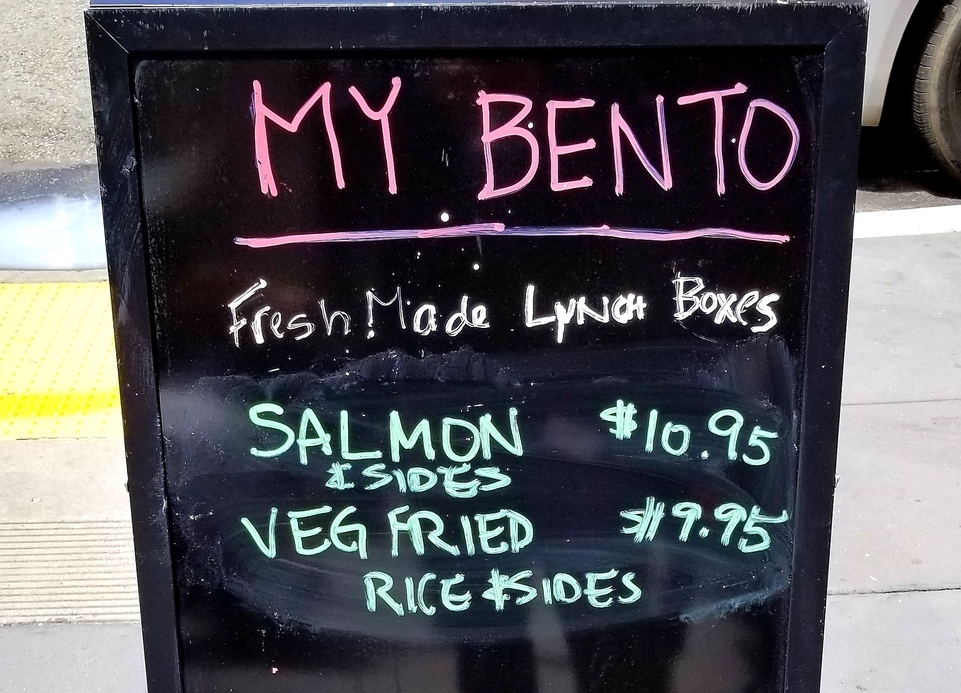 MY BENTO
Fresh Made Lunch Boxes
SALMON $10.95
& SIDES
VEG FRIED $9.95
RICE & SIDES